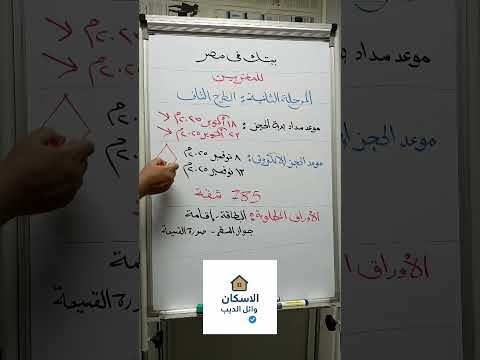 بيتك في مصر
للمغتربين
المرحلة الثانية: الطرح الثاني
موعد سداد جدية الحجز: ١٨ أكتوبر ٢٠٢٥م
٢٢ أكتوبر ٢٠٢٥م
موعد الحجز الالكتروني: ٨ نوفمبر ٢٠٢٥م
١٢ نوفمبر ٢٠٢٥م
285 شقة
الأوراق المطلوبة: البطاقة - إقامة
جواز السفر - صورة القسيمة
الاسكان
وائل الديب